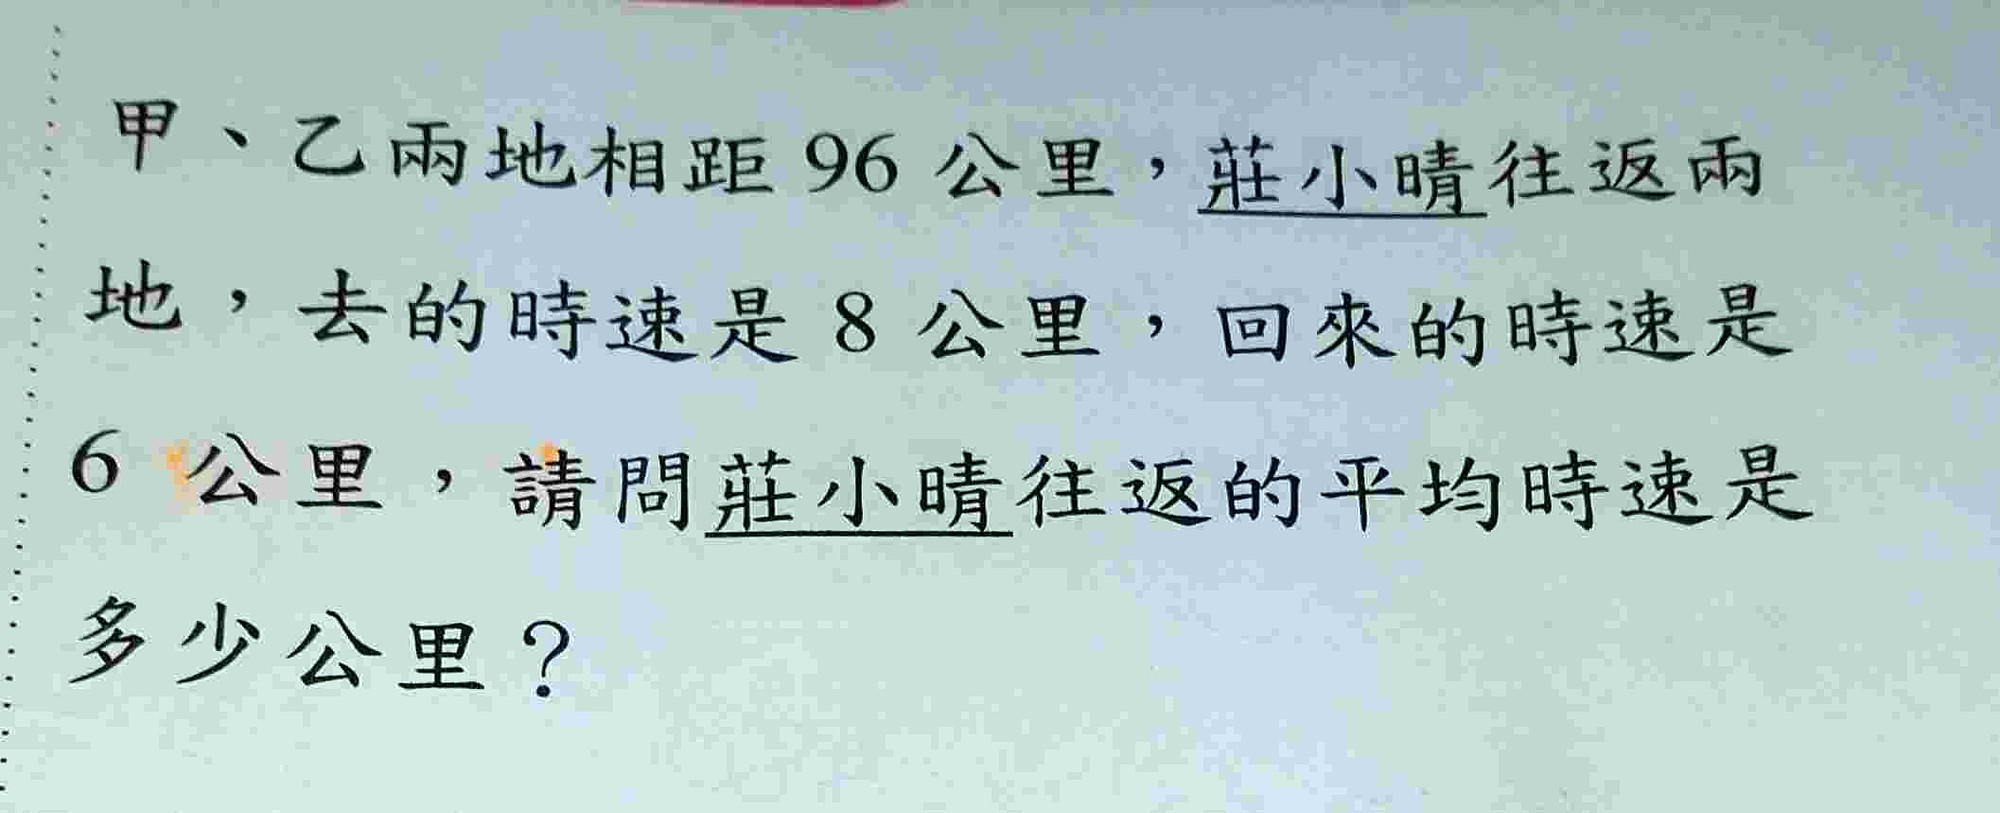 甲、乙兩地相距 96 公里，莊小晴往返兩
地，去的時速是 8 公里，回來的時速是
6 公里，請問莊小晴往返的平均時速是
多少公里？